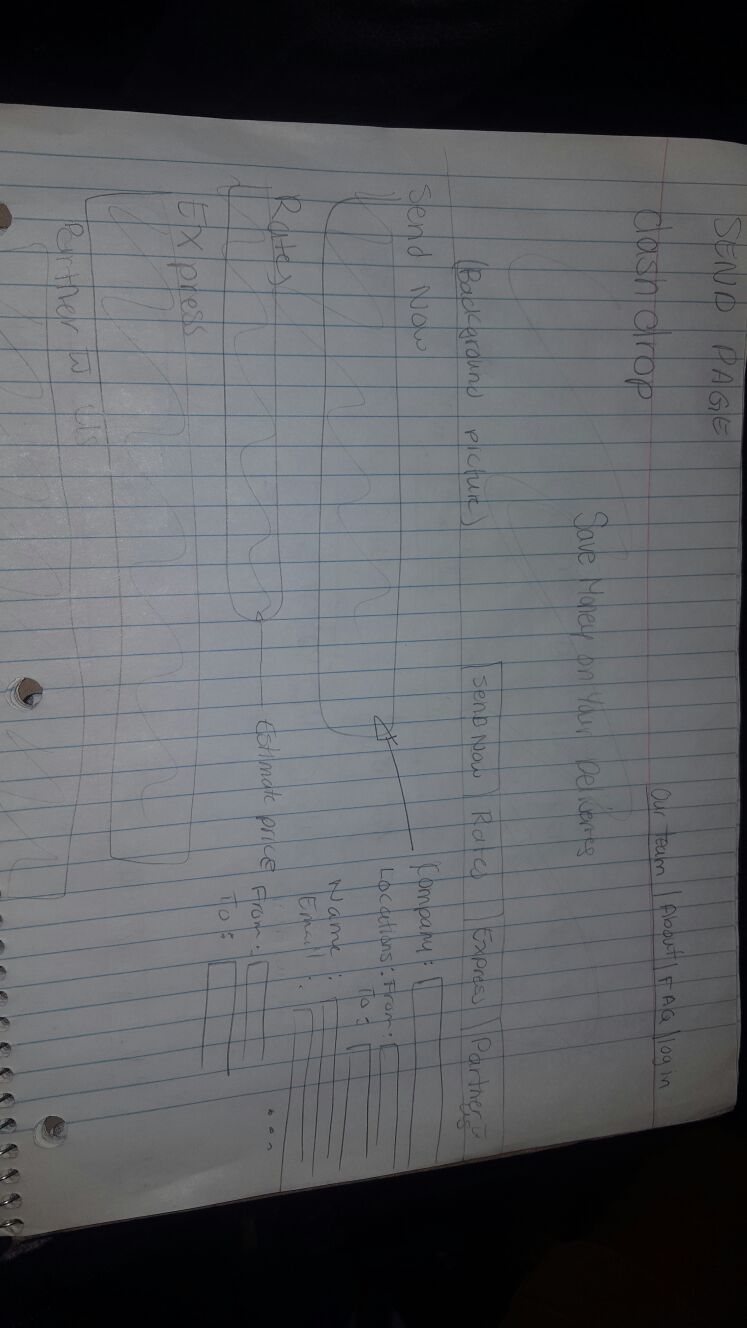 SEND PAGE
dashdrop
Our team | About | FAQ | log in
Save Money on Your Deliveries
(Background picture)
Send Now | Rates | Express | Partner w
us
Send Now
Company:
Locations: From:
To:
Name:
Email:
Rates
Estimate price From:
To:
...
Express
Partner w us